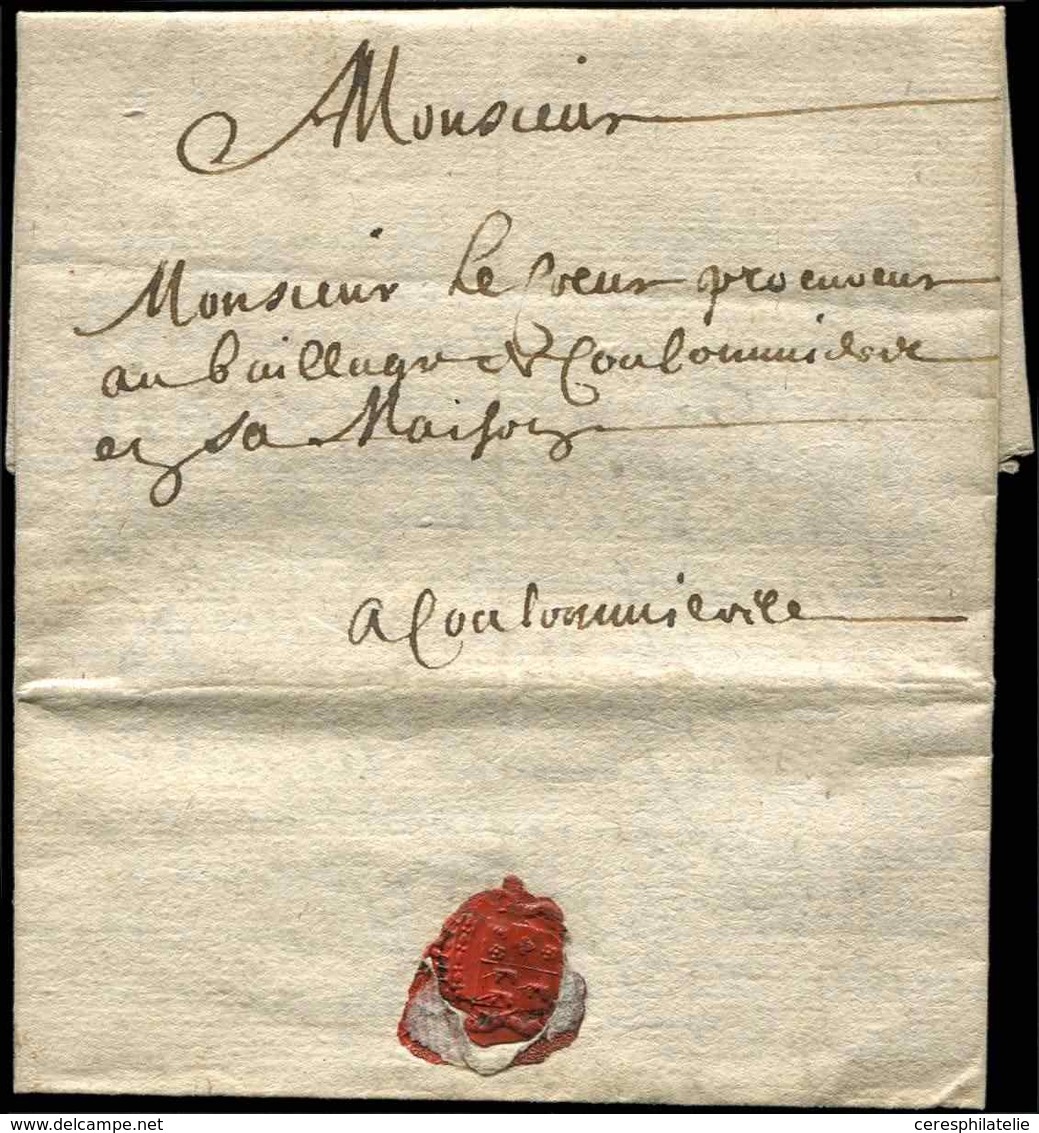 Monsieur
Monsieur Le Coeur procureur
au baillage de Coulommiers
en sa Maison
a Coulommier
ceresphilatelie
delcampe.net